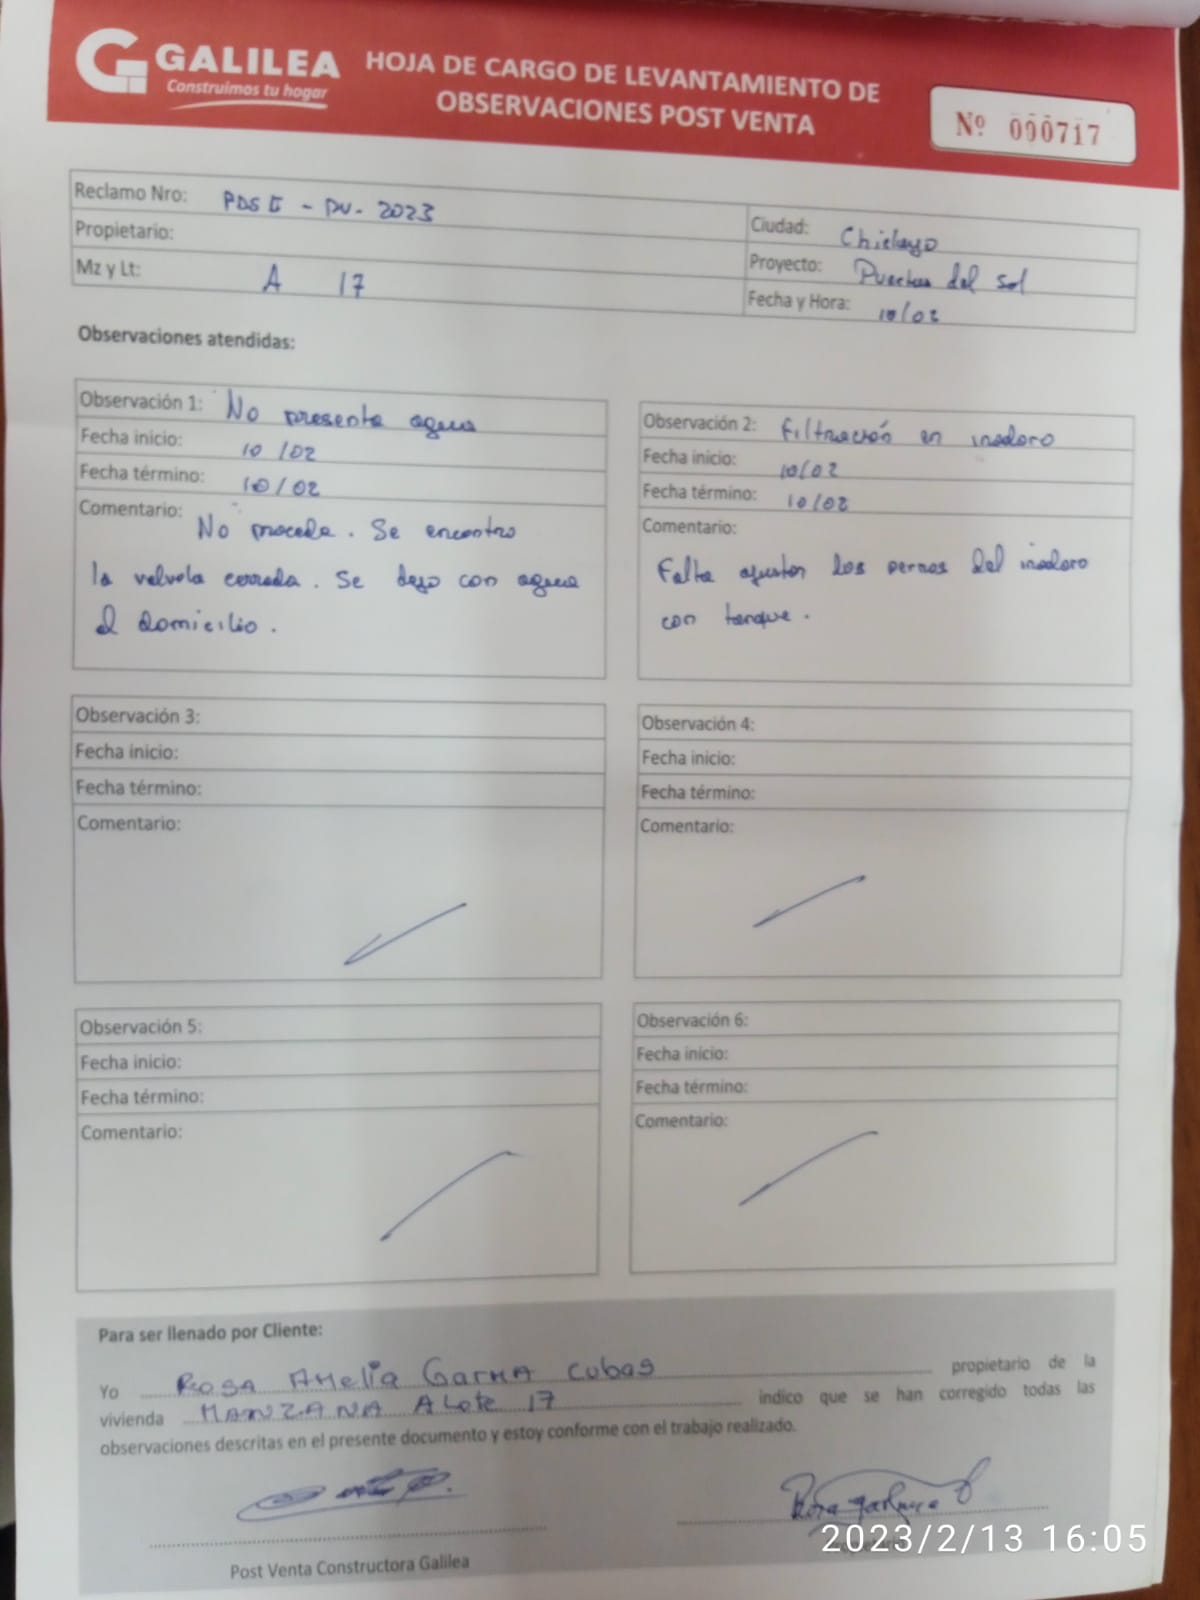 GALILEA
Construimos tu hogar
HOJA DE CARGO DE LEVANTAMIENTO DE
OBSERVACIONES POST VENTA
Nº 000717
Reclamo Nro: PDS I - DV - 2023
Propietario:
Mz y Lt: A 17
Ciudad: Chiclayo
Proyecto: Puertas del sol
Fecha y Hora: 10/02
Observaciones atendidas:
Observación 1: No presenta agua
Fecha inicio: 10/02
Fecha término: 10/02
Comentario: No procede. Se encontro
la valvola cerrada. Se dejo con agua
el domicilio.
Observación 2: Filtración en inodoro
Fecha inicio: 10/02
Fecha término: 10/02
Comentario:
Falta ajustar los pernos del inodoro
con tanque.
Observación 3:
Fecha inicio:
Fecha término:
Comentario:
Observación 4:
Fecha inicio:
Fecha término:
Comentario:
Observación 5:
Fecha inicio:
Fecha término:
Comentario:
Observación 6:
Fecha inicio:
Fecha término:
Comentario:
Para ser llenado por Cliente:
Yo ROSA AMelia GarMA Cubas propietario de la
vivienda MANZANA A Lote 17 indico que se han corregido todas las
observaciones descritas en el presente documento y estoy conforme con el trabajo realizado.
Post Venta Constructora Galilea
2023/2/13 16:05